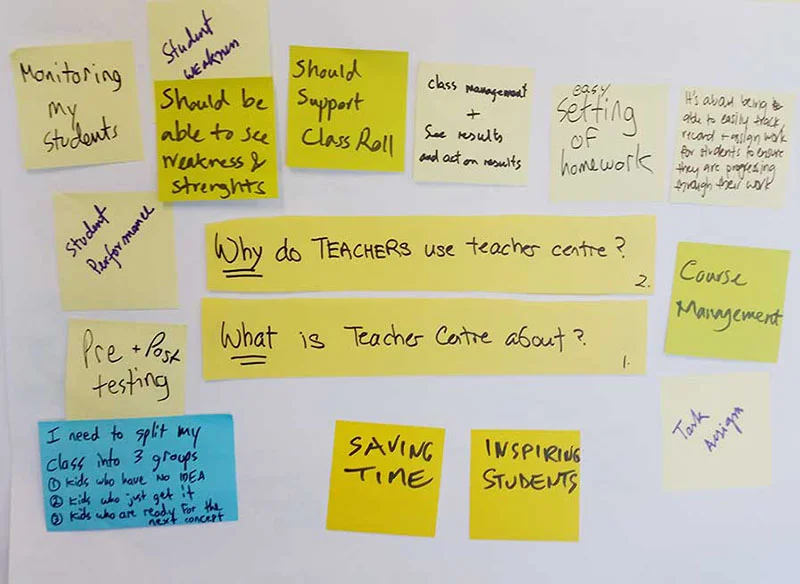 Monitoring
my
Students
Student
weakness
Should be
able to see
weakness &
strenghts
Should
Support
Class Roll
class management
+
See results
and act on results
easy
Setting
of
homework
It's about being
able to easily track,
record + assign work
for students to ensure
they are progressing
through their work
Student
Performance
Why do TEACHERS use teacher centre?
2.
Course
Management
What is Teacher Centre about?
1.
Pre + Post
testing
Task
Assign
I need to split my
class into 3 groups
① Kids who have no IDEA
② Kids who just get it
③ Kids who are ready for the
next concept
SAVING
TIME
INSPIRING
STUDENTS